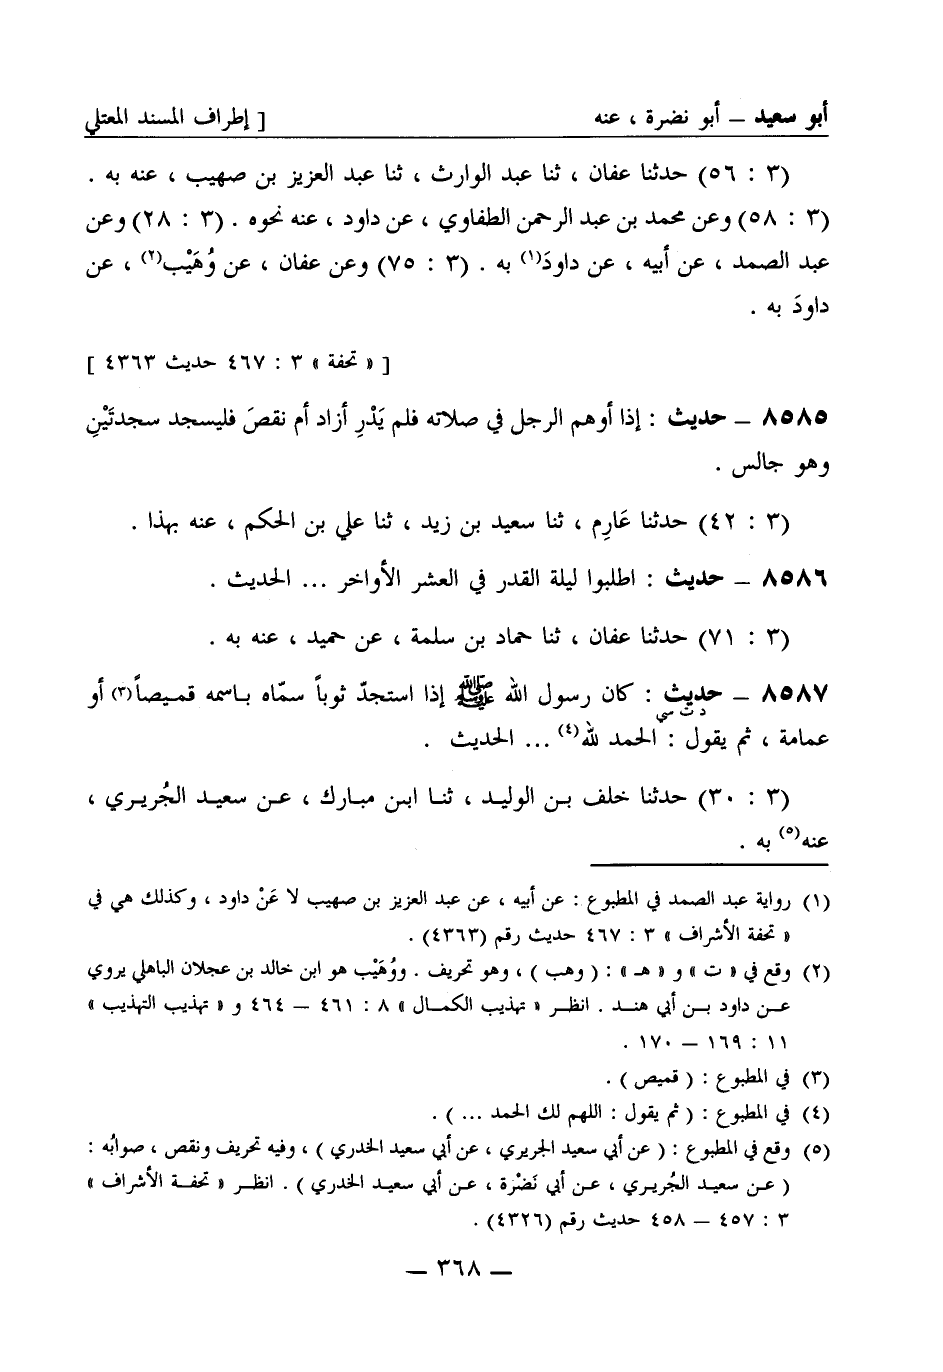 أبو سعيد — أبو نضرة ، عنه [ إطراف المسند المعتلي
(٣ : ٥٦) حدثنا عفان ، ثنا عبد الوارث ، ثنا عبد العزيز بن صهيب ، عنه به .
(٣ : ٥٨) وعن محمد بن عبد الرحمن الطفاوي ، عن داود ، عنه نحوه . (٣ : ٢٨) وعن
عبد الصمد ، عن أبيه ، عن داودَ(١) به . (٣ : ٧٥) وعن عفان ، عن وُهَيْب(٢) ، عن
داودَ به .
[ « تحفة » ٣ : ٤٦٧ حديث ٤٣٦٣ ]
٨٥٨٥ — حديث : إذا أوهم الرجل في صلاته فلم يَدْرِ أزاد أم نقصَ فليسجد سجدتَيْنِ
وهو جالس .
(٣ : ٤٢) حدثنا عَارِم ، ثنا سعيد بن زيد ، ثنا علي بن الحكم ، عنه بهذا .
٨٥٨٦ — حديث : اطلبوا ليلة القدر في العشر الأواخر ... الحديث .
(٣ : ٧١) حدثنا عفان ، ثنا حماد بن سلمة ، عن حميد ، عنه به .
٨٥٨٧ — حديث : كان رسول الله ﷺ إذا استجدّ ثوباً سمّاه باسمه قميصاً(٣) أو
د ت سي
عمامة ، ثم يقول : الحمد لله(٤) ... الحديث .
(٣ : ٣٠) حدثنا خلف بن الوليد ، ثنا ابن مبارك ، عن سعيد الجُريري ،
عنه(٥) به .
(١) رواية عبد الصمد في المطبوع : عن أبيه ، عن عبد العزيز بن صهيب لا عَنْ داود ، وكذلك هي في
« تحفة الأشراف » ٣ : ٤٦٧ حديث رقم (٤٣٦٣) .
(٢) وقع في « ت » و « هـ » : ( وهب ) ، وهو تحريف . ووُهَيْب هو ابن خالد بن عجلان الباهلي يروي
عن داود بن أبي هند . انظر « تهذيب الكمال » ٨ : ٤٦١ — ٤٦٤ و « تهذيب التهذيب »
١١ : ١٦٩ — ١٧٠ .
(٣) في المطبوع : ( قميص ) .
(٤) في المطبوع : ( ثم يقول : اللهم لك الحمد ... ) .
(٥) وقع في المطبوع : ( عن أبي سعيد الجريري ، عن أبي سعيد الخدري ) ، وفيه تحريف ونقص ، صوابُه :
( عن سعيد الجُريري ، عن أبي نَضْرة ، عن أبي سعيد الخدري ) . انظر « تحفة الأشراف »
٣ : ٤٥٧ — ٤٥٨ حديث رقم (٤٣٢٦) .
— ٣٦٨ —